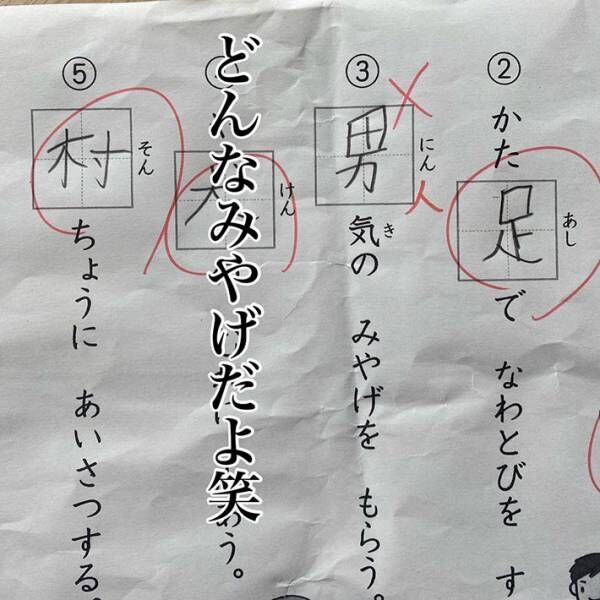 ②
かた足で なわとびを す
あし
③
男気の みやげを もらう。
にん
き
人
どんなみやげだよ笑
けん
う。
⑤
村ちょうに あいさつする。
そん